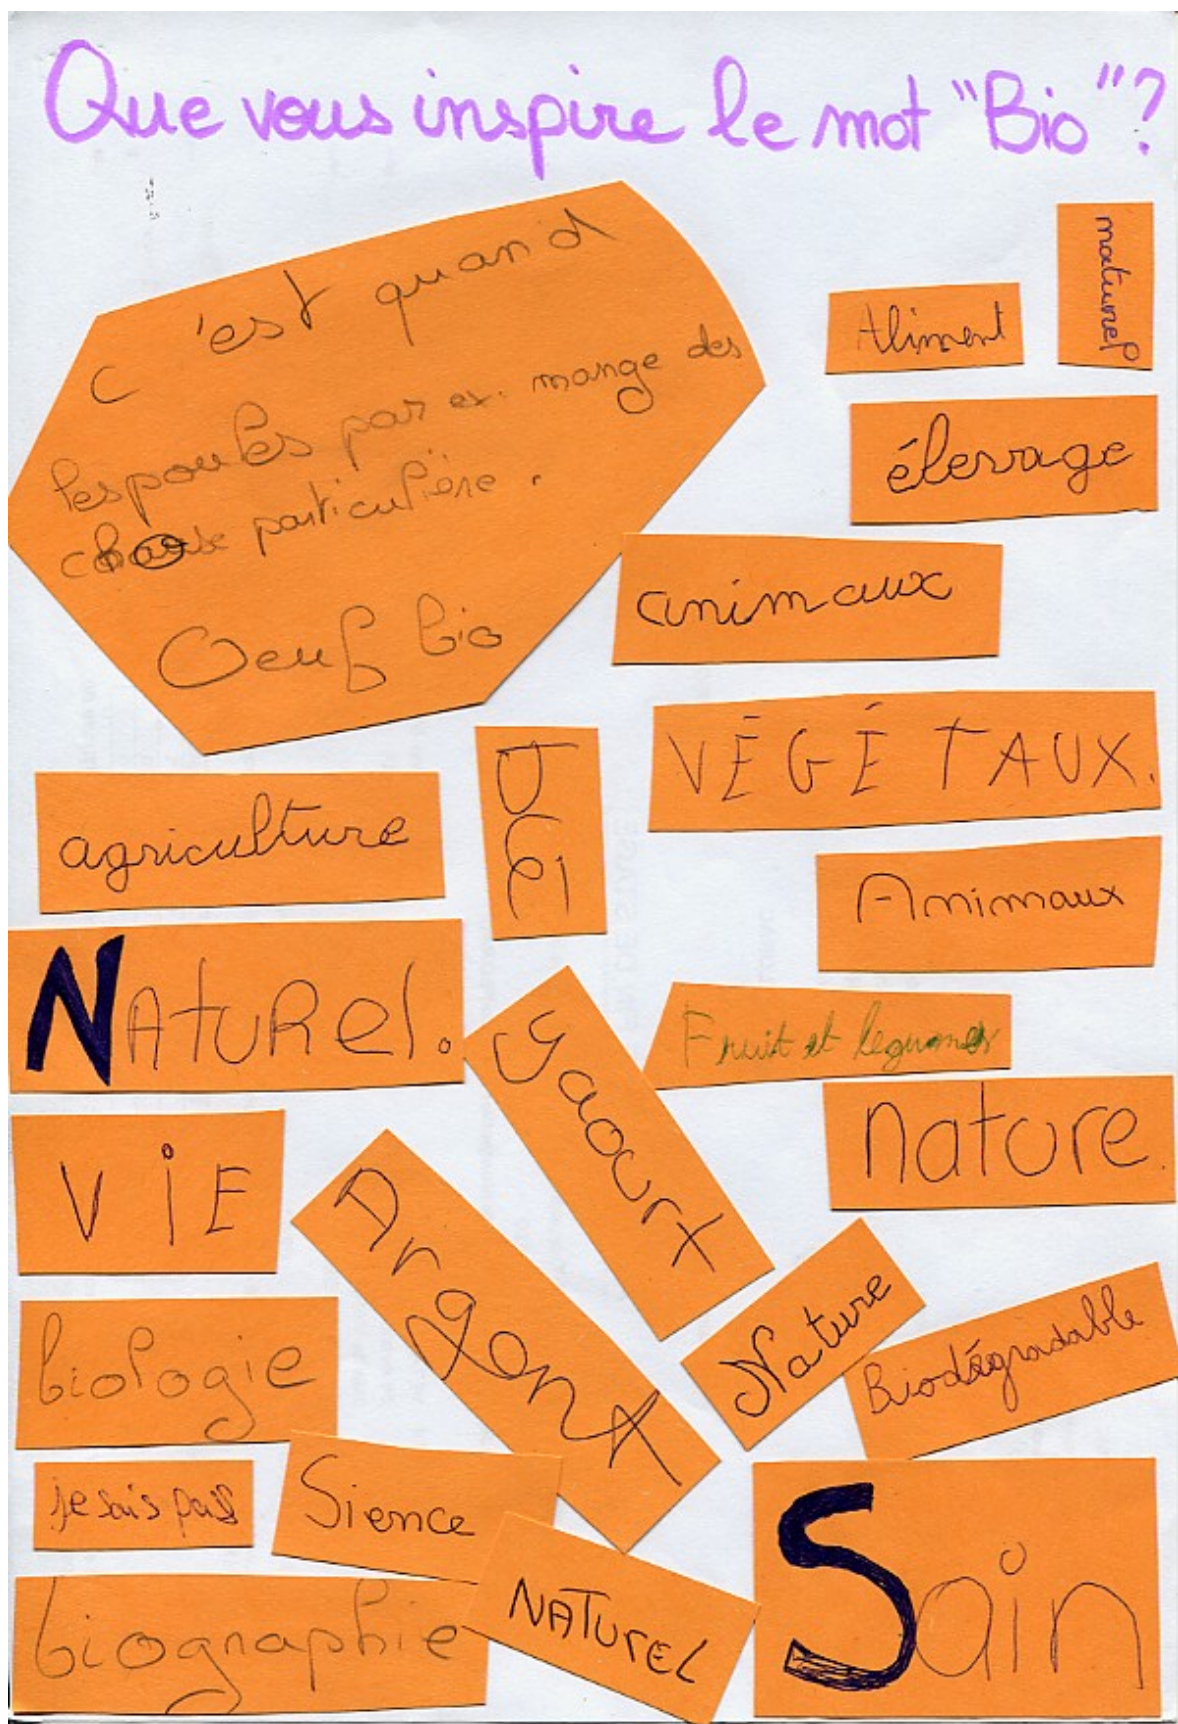 Que vous inspire le mot "Bio"?
c'est quand
les poules par ex. mange des
chose particulière.
Oeuf bio
naturel
Aliment
élevage
animaux
VÉGÉTAUX.
agriculture
Animaux
NAtuRel.
yaourt
Fruit et legumes
nature.
ViE
Argent
Nature
Biodégradable
biologie
je sais pas
Sience
NATUrEL
Sain
biographie